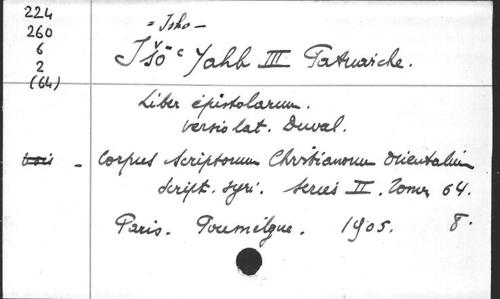 224
260
6
2
(64)
= Isho –
Išōʿ Yahb III Patriarche.
Liber epistolarum.
Versio lat. Duval.
– Corpus Scriptorum Christianorum Orientalium
Script. Syri. Series II. Tomus 64.
Paris. Poussielgue. 1905. 8.